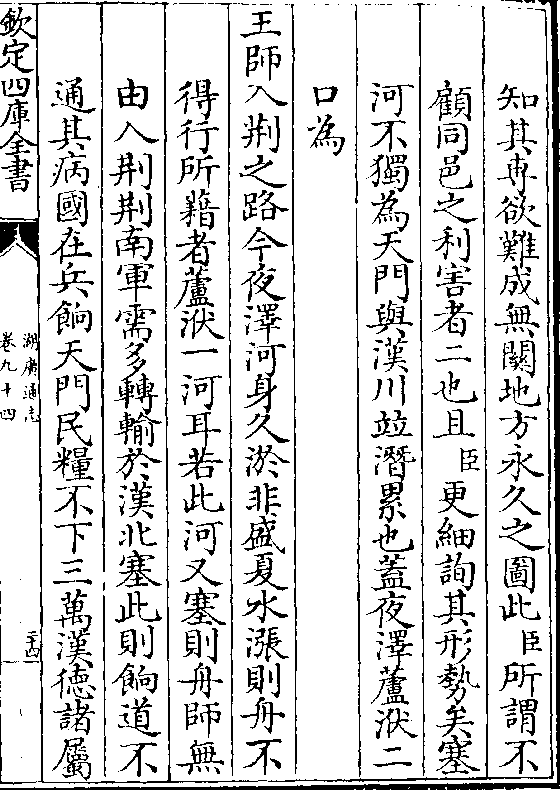 知其専欲難成無關地方永久之圖此臣所謂不
顧同邑之利害者二也且臣更細詢其形勢矣塞
河不獨為天門與漢川竝潛累也蓋夜澤蘆洑二
口為
王師入荆之路今夜澤河身久淤非盛夏水漲則舟不
得行所藉者蘆洑一河耳若此河又塞則舟師無
由入荆荆南軍需多轉輸於漢北塞此則餉道不
通其病國在兵餉天門民糧不下三萬漢徳諸屬
欽定四庫全書
湖廣通志
卷九十四
二十四